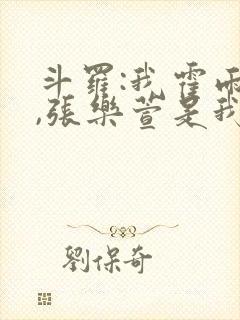 斗羅:我霍雨
,張樂萱是我
劉保奇